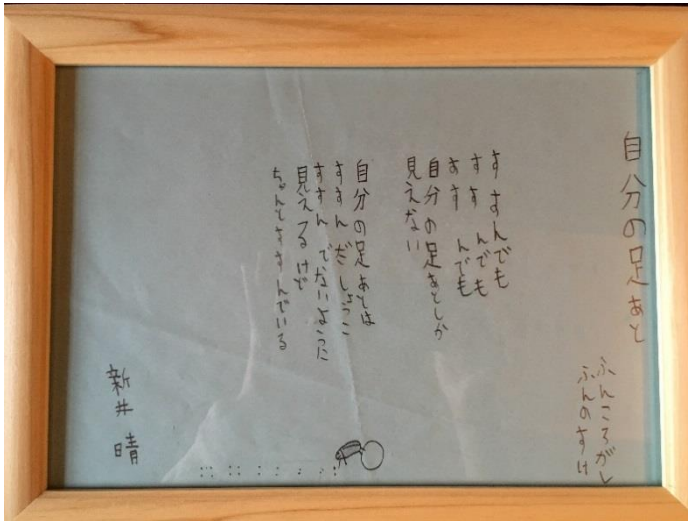 自分の足あと
ふんころがし
ふんのすけ
すすんでも
すすんでも
すすんでも
自分の足あとしか
見えない
自分の足あとは
すすんだしょうこ
すすんでないように
見えるけど
ちゃんとすすんでいる
新井晴